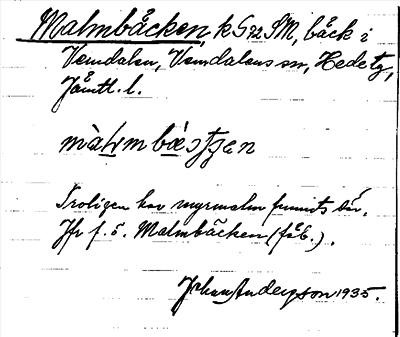 Malmbäcken, k G72 SM, bäck i
Vemdalen, Vemdalens sn, Hede tg,
Jämtl. l.
Troligen har myrmalm funnits där.
Jfr f. ö. Malmbäcken (fäb.).
Johan Anderson 1935.